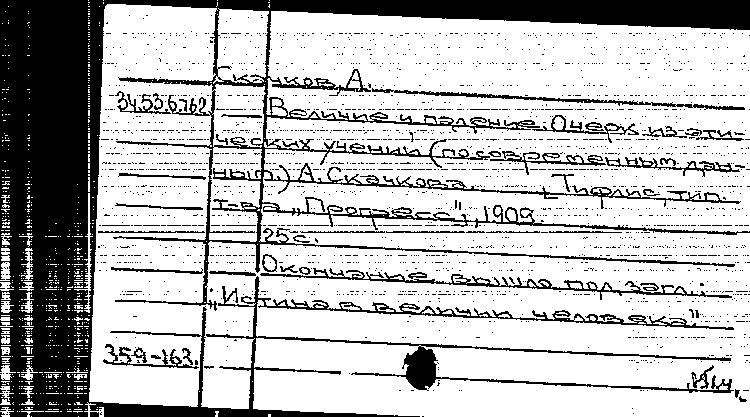 Скачков, А.
34.53.6.762. Величие и падение. Очерк из эти-
ческих учений (по современным дан-
ным.) А. Скачкова. Тифлис, тип.
т-ва „Прогресс", 1909.
25 с.
Окончание вышло под загл.:
„Истина в величии человека".
359-163.